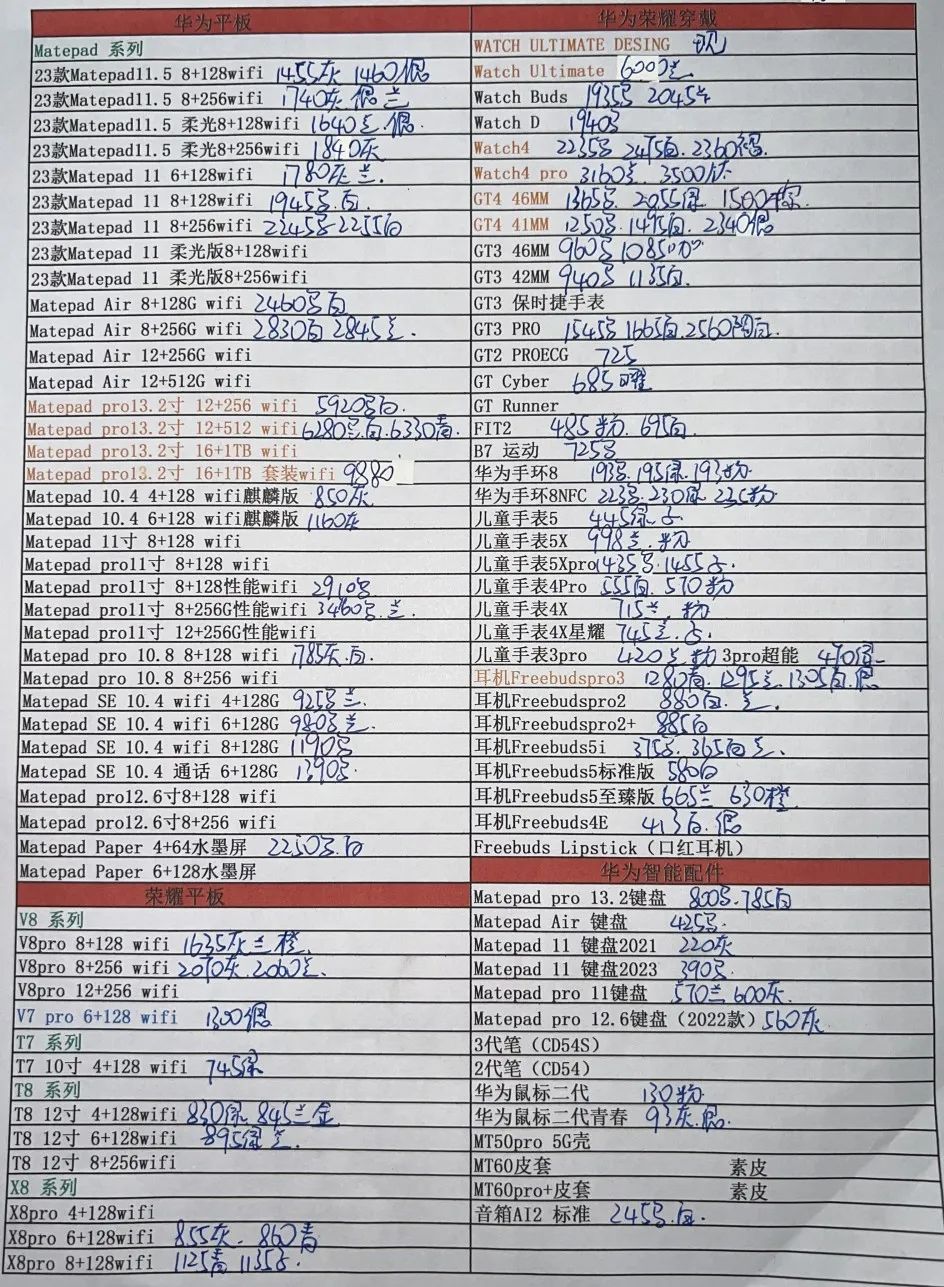 华为平板
Matepad 系列
23款Matepad11.5 8+128wifi 1455灰 1460
23款Matepad11.5 8+256wifi 1740灰 兰
23款Matepad11.5 柔光8+128wifi 1640兰.
23款Matepad11.5 柔光8+256wifi 1840灰
23款Matepad 11 6+128wifi 1780灰 兰.
23款Matepad 11 8+128wifi 1945 白.
23款Matepad 11 8+256wifi 2245 2255白
23款Matepad 11 柔光版8+128wifi
23款Matepad 11 柔光版8+256wifi
Matepad Air 8+128G wifi 2460 白
Matepad Air 8+256G wifi 2830白 2845兰.
Matepad Air 12+256G wifi
Matepad Air 12+512G wifi
Matepad pro13.2寸 12+256 wifi 5920 白.
Matepad pro13.2寸 12+512 wifi 6280 白.6330青.
Matepad pro13.2寸 16+1TB wifi
Matepad pro13.2寸 16+1TB 套装wifi 9380
Matepad 10.4 4+128 wifi麒麟版 850灰
Matepad 10.4 6+128 wifi麒麟版 1160灰
Matepad 11寸 8+128 wifi
Matepad pro11寸 8+128 wifi
Matepad pro11寸 8+128性能wifi 2910
Matepad pro11寸 8+256G性能wifi 3460 兰.
Matepad pro11寸 12+256G性能wifi
Matepad pro 10.8 8+128 wifi 1785灰.白
Matepad pro 10.8 8+256 wifi
Matepad SE 10.4 wifi 4+128G 925 兰
Matepad SE 10.4 wifi 6+128G 980 兰
Matepad SE 10.4 wifi 8+128G 1190
Matepad SE 10.4 通话 6+128G 1390
Matepad pro12.6寸8+128 wifi
Matepad pro12.6寸8+256 wifi
Matepad Paper 4+64水墨屏 2250 白
Matepad Paper 6+128水墨屏
荣耀平板
V8 系列
V8pro 8+128 wifi 1635灰兰 橙.
V8pro 8+256 wifi 2070灰.2060兰.
V8pro 12+256 wifi
V7 pro 6+128 wifi 1300
T7 系列
T7 10寸 4+128 wifi 745绿
T8 系列
T8 12寸 4+128wifi 830绿. 845兰金
T8 12寸 6+128wifi 895绿兰.
T8 12寸 8+256wifi
X8 系列
X8pro 4+128wifi
X8pro 6+128wifi 855灰. 860青
X8pro 8+128wifi 1125青 1135
华为荣耀穿戴
WATCH ULTIMATE DESING 现
Watch Ultimate 6000兰
Watch Buds 1935 2045
Watch D 1940
Watch4 2235 2415白.2360
Watch4 pro 3160 3500
GT4 46MM 1365 .2055绿. 1500棕.
GT4 41MM 1250 .1495白. 2340
GT3 46MM 960 1085
GT3 42MM 940 1135白.
GT3 保时捷手表
GT3 PRO 1545 1665白.2560
GT2 PROECG 725
GT Cyber 685曜
GT Runner
FIT2 485粉. 695白.
B7 运动 725
华为手环8 193 .195绿.193粉
华为手环8NFC 223 .230绿 235粉
儿童手表5 445绿.
儿童手表5X 998兰.粉
儿童手表5Xpro 1435 .1455
儿童手表4Pro 555白. 570粉
儿童手表4X 715兰.粉
儿童手表4X星耀 745兰.
儿童手表3pro 420兰 粉 3pro超能 470绿
耳机Freebudspro3 1280青.1295兰.1305白.
耳机Freebudspro2 880白.兰.
耳机Freebudspro2+ 885白
耳机Freebuds5i 375 .365白兰.
耳机Freebuds5标准版 580白
耳机Freebuds5至臻版 665兰 630橙
耳机Freebuds4E 413白.
Freebuds Lipstick（口红耳机）
华为智能配件
Matepad pro 13.2键盘 800 .785白
Matepad Air 键盘 425
Matepad 11 键盘2021 220灰
Matepad 11 键盘2023 390
Matepad pro 11键盘 570兰 600灰.
Matepad pro 12.6键盘（2022款）560灰
3代笔（CD54S）
2代笔（CD54）
华为鼠标二代 130粉
华为鼠标二代青春 93灰.
MT50pro 5G壳
MT60皮套 素皮
MT60pro+皮套 素皮
音箱AI2 标准 245 .白.